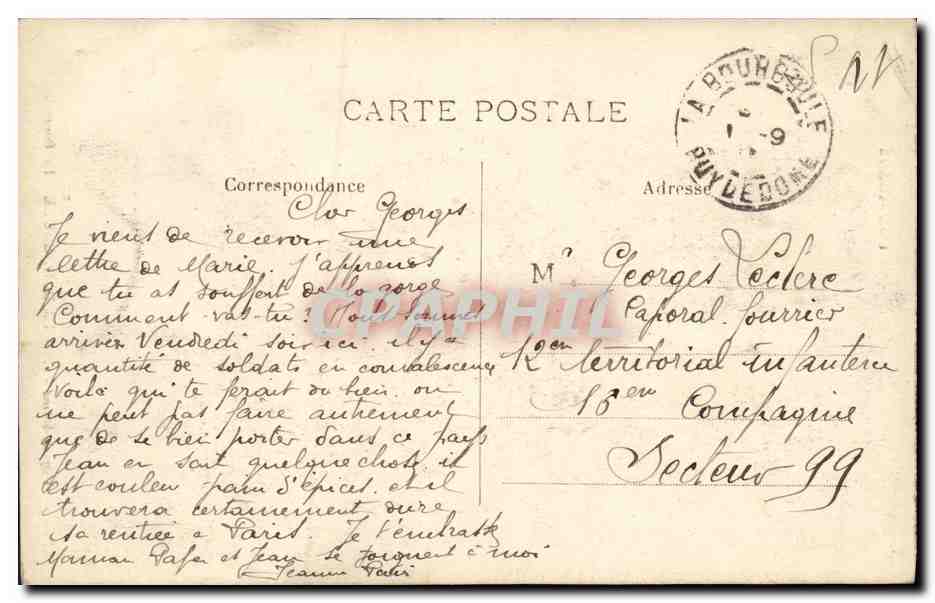 CARTE POSTALE
LA BOURBOULE
1 -9
PUY DE DOME
Correspondance
Adresse
Cher Georges
Je viens de recevoir une
lettre de Marie. J'apprends
que tu as souffert de la gorge
Comment vas-tu? Nous sommes
arrivés Vendredi soir ici. il y a
quantité de soldats en convalescence
voilà qui te ferait du bien. on
ne peut pas faire autrement
que de se bien porter dans ce pays
Jean en sait quelque chose. il
est couleur pain d'épices. et il
trouvera certainement dure
sa rentrée à Paris. Je t'embrasse
Maman Papa et Jean se joignent à moi
Jeanne
Mr Georges Leclerc
Caporal fourrier
12em territorial infanterie
16em Compagnie
Secteur 99
CPAPHIL